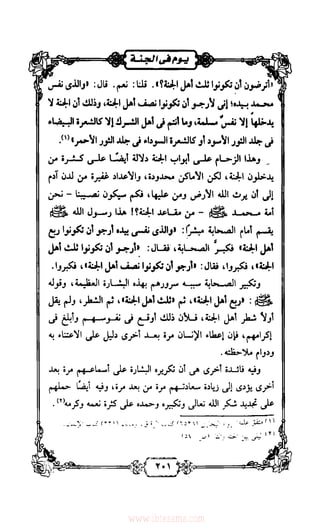 يوم فى الجنة
«أترضون أن تكونوا ثلث أهل الجنة؟» قلنا: نعم. قال: «والذى نفس
محمد بيده؛ إنى لأرجو أن تكونوا نصف أهل الجنة، وذلك أن الجنة لا
يدخلها إلا نفس مسلمة، وما أنتم فى أهل الشرك إلا كالشعرة البيضاء
فى جلد الثور الأسود أو كالشعرة السوداء فى جلد الثور الأحمر»(١).
وهذا الزحام على أبواب الجنة دلالة أيضًا على كثرة من
يدخلون الجنة، لكن الأماكن محدودة، والأعداد غفيرة من لدن آدم
إلى أن يرث الله الأرض ومن عليها، فكم سيكون نصيبنا - نحن
أمة محمد ﷺ - من مقاعد الجنة؟! هذا رسول الله ﷺ
يقسم أمام الصحابة مبشرًا: «والذى نفسى بيده أرجو أن تكونوا ربع
أهل الجنة» فكبر الصحابة، فقال: «أرجو أن تكونوا ثلث أهل
الجنة»، فكبروا، فقال: «أرجو أن تكونوا نصف أهل الجنة»، فكبروا.
وتكبير الصحابة سببه سرورهم بهذه البشارة العظيمة، وقوله
ﷺ: «ربع أهل الجنة»، ثم «ثلث أهل الجنة»، ثم الشطر، ولم يقل
أولاً شطر أهل الجنة، فلأن ذلك أوقع فى نفوسهم وأبلغ فى
إكرامهم، فإن إعطاء الإنسان مرة بعد أخرى دليل على الاعتناء به
ودوام ملاحظته.
وفيه فائدة أخرى هى أن تكريره البشارة على أسماعهم مرة بعد
أخرى يؤدى إلى زيادة سعادتهم مرة من بعد مرة، وفيه أيضًا حملهم
على تجديد شكر الله تعالى وتكبيره وحمده على كثرة نعمه وكرمه(٢).
(١) متفق عليه:
(٢)
٢٠١
www.ibtesama.com